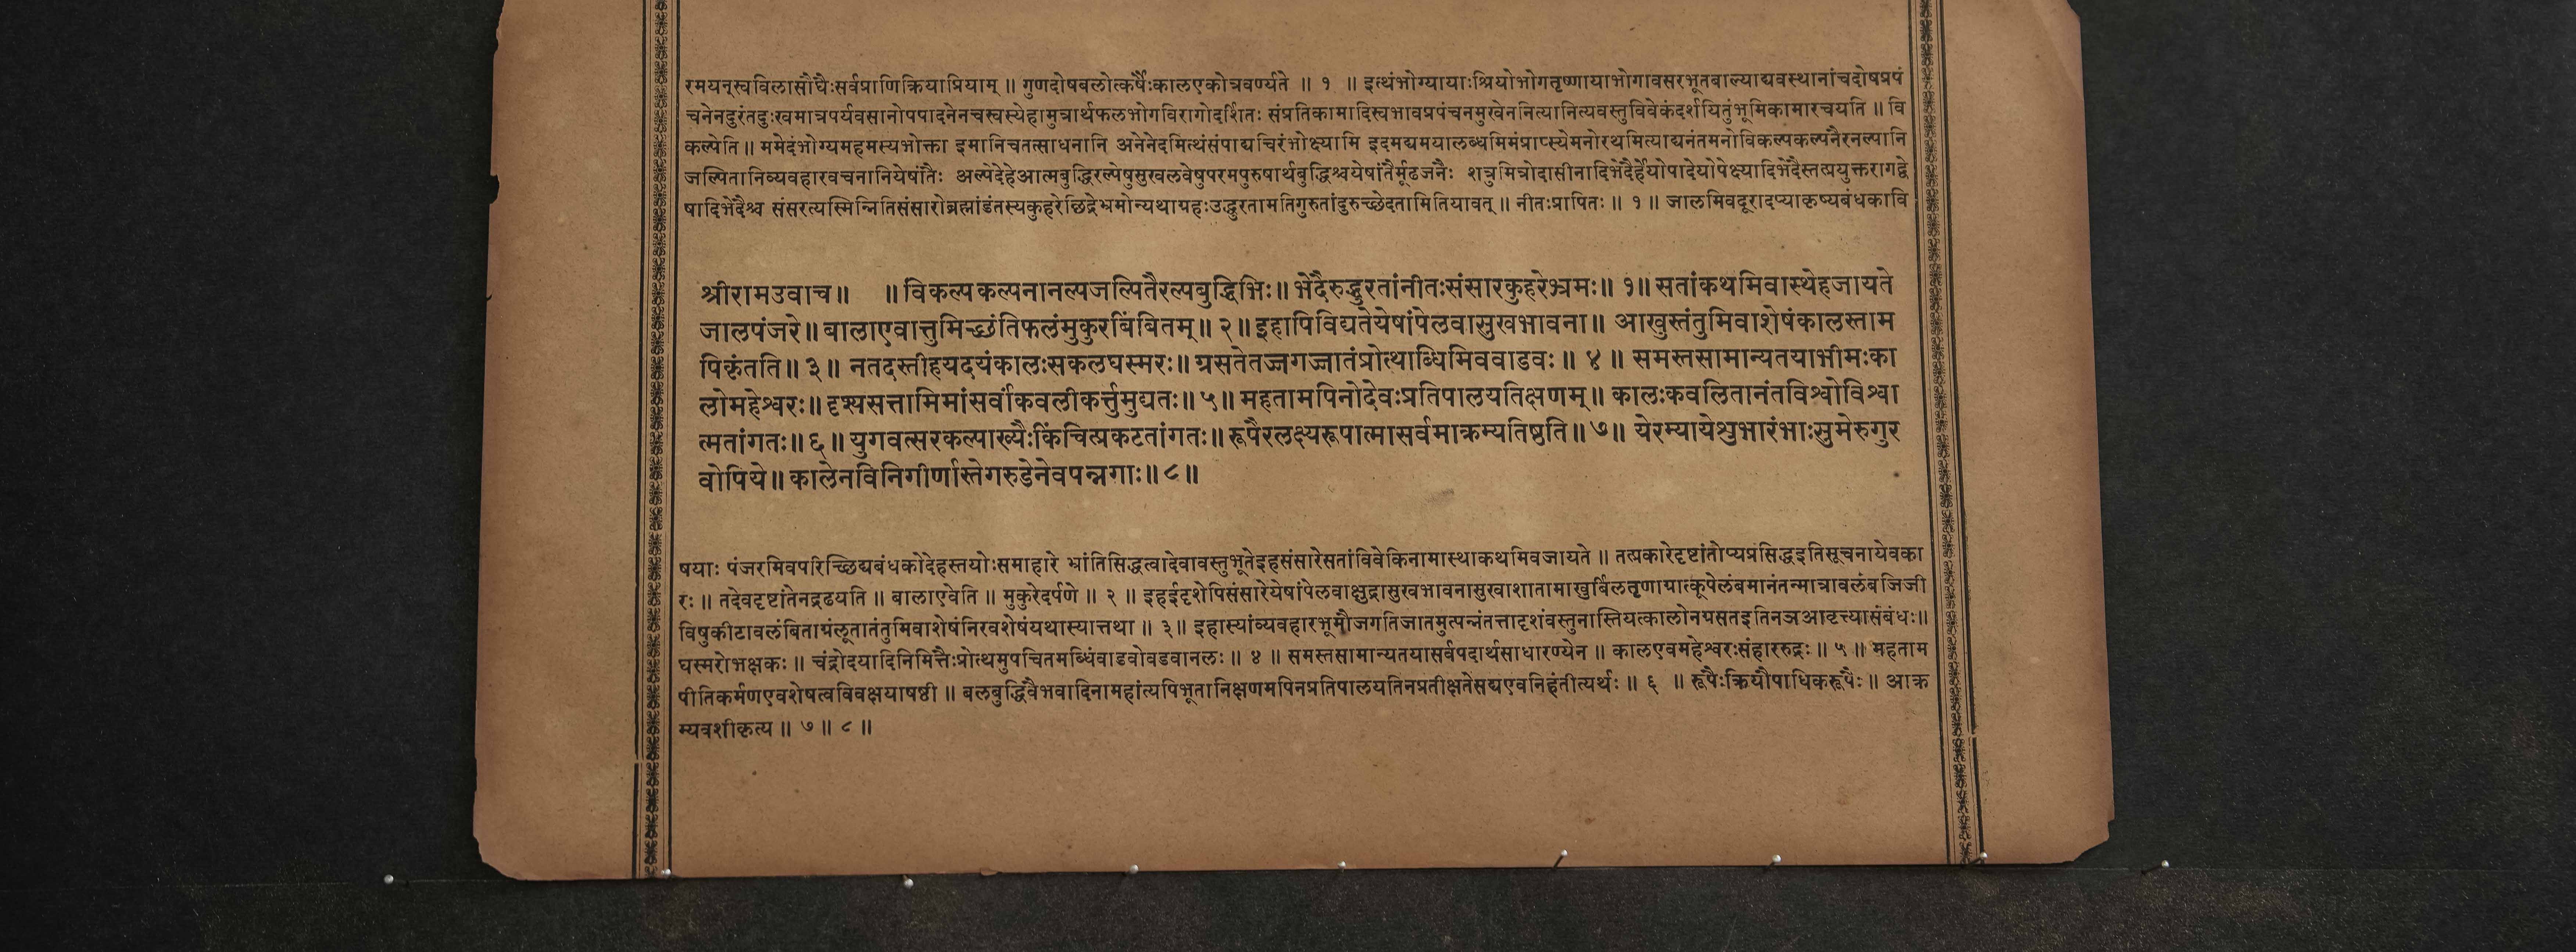 रमयन्स्वविलासौघैःसर्वप्राणिक्रियाप्रियाम् ॥ गुणदोषबलोत्कर्षैःकालएकोत्रवर्ण्यते ॥ १ ॥ इत्थंभोग्यायाःश्रियोभोगतृष्णायाभोगावसरभूतबाल्याद्यवस्थानांचदोषप्रपं
चनेनदुरंतदुःखमात्रपर्यवसानोपपादनेनचस्वस्येहामुत्रार्थफलभोगविरागोदर्शितः संप्रतिकामादिस्वभावप्रपंचनमुखेननित्यानित्यवस्तुविवेकंदर्शयितुंभूमिकामारचयति ॥ वि
कल्पेति ॥ ममेदंभोग्यमहमस्यभोक्ता इमानिचतत्साधनानि अनेनेदमित्थंसंपाद्यचिरंभोक्ष्यामि इदमद्यमयालब्धमिमंप्राप्स्येमनोरथमित्याद्यनंतमनोविकल्पकल्पनैरनल्पानि
जल्पितानिव्यवहारवचनानियेषांतैः अल्पेदेहेआत्मबुद्धिरल्पेषुसुखलवेषुपरमपुरुषार्थबुद्धिश्चयेषांतैर्मूढजनैः शत्रुमित्रोदासीनादिभेदैर्हेयोपादेयोपेक्ष्यादिभेदैस्तत्प्रयुक्तरागद्वे
षादिभेदैश्च संसरत्यस्मिन्नितिसंसारोब्रह्मांडंतस्यकुहरेछिद्रेभ्रमोन्यथाग्रहःउद्धुरतामतिगुरुतांदुरुच्छेदतामितियावत् ॥ नीतःप्रापितः ॥ १ ॥ जालमिवदूरादप्याकृष्यबंधकावि
श्रीरामउवाच ॥ ॥ विकल्पकल्पनानल्पजल्पितैरल्पबुद्धिभिः ॥ भेदैरुद्धुरतांनीतःसंसारकुहरेभ्रमः ॥ १ ॥ सतांकथमिवास्थेहजायते
जालपंजरे ॥ बालाएवात्तुमिच्छंतिफलंमुकुरबिंबितम् ॥ २ ॥ इहापिविद्यतेयेषांपेलवासुखभावना ॥ आखुस्तंतुमिवाशेषंकालस्ताम
पिकृंतति ॥ ३ ॥ नतदस्तीहयदयंकालःसकलघस्मरः ॥ ग्रसतेतज्जगज्जातंप्रोत्थाब्धिमिववाडवः ॥ ४ ॥ समस्तसामान्यतयाभीमःका
लोमहेश्वरः ॥ दृश्यसत्तामिमांसर्वांकवलीकर्त्तुमुद्यतः ॥ ५ ॥ महतामपिनोदेवःप्रतिपालयतिक्षणम् ॥ कालःकवलितानंतविश्वोविश्वा
त्मतांगतः ॥ ६ ॥ युगवत्सरकल्पाख्यैःकिंचित्प्रकटतांगतः ॥ रूपैरलक्ष्यरूपात्मासर्वमाक्रम्यतिष्ठति ॥ ७ ॥ येरम्यायेशुभारंभाःसुमेरुगुर
वोपिये ॥ कालेनविनिगीर्णास्तेगरुडेनेवपन्नगाः ॥ ८ ॥
षयाः पंजरमिवपरिच्छिद्यबंधकोदेहस्तयोःसमाहारे भ्रांतिसिद्धत्वादेवावस्तुभूतेइहसंसारेसतांविवेकिनामास्थाकथमिवजायते ॥ तत्प्रकारेदृष्टांतोप्यप्रसिद्धइतिसूचनायेवका
रः ॥ तदेवदृष्टांतेनद्रढयति ॥ बालाएवेति ॥ मुकुरेदर्पणे ॥ २ ॥ इहईदृशेपिसंसारेयेषांपेलवाक्षुद्रासुखभावनासुखाशातामाखुर्बिलतृणायात्कूपेलंबमानंतन्मात्रावलंबजिजी
विषुकीटावलंबिताग्रंलूतातंतुमिवाशेषंनिरवशेषंयथास्यात्तथा ॥ ३ ॥ इहास्यांव्यवहारभूमौजगतिजातमुत्पन्नंतत्तादृशंवस्तुनास्तियत्कालोनग्रसतइतिनञआवृत्त्यासंबंधः ॥
घस्मरोभक्षकः ॥ चंद्रोदयादिनिमित्तैःप्रोत्थमुपचितमब्धिंवाडवोवडवानलः ॥ ४ ॥ समस्तसामान्यतयासर्वपदार्थसाधारण्येन ॥ कालएवमहेश्वरःसंहाररुद्रः ॥ ५ ॥ महताम
पीतिकर्मणएवशेषत्वविवक्षयाषष्ठी ॥ बलबुद्धिवैभवादिनामहांत्यपिभूतानिक्षणमपिनप्रतिपालयतिनप्रतीक्षतेसद्यएवनिहंतीत्यर्थः ॥ ६ ॥ रूपैःक्रियौपाधिकरूपैः ॥ आक्र
म्यवशीकृत्य ॥ ७ ॥ ८ ॥